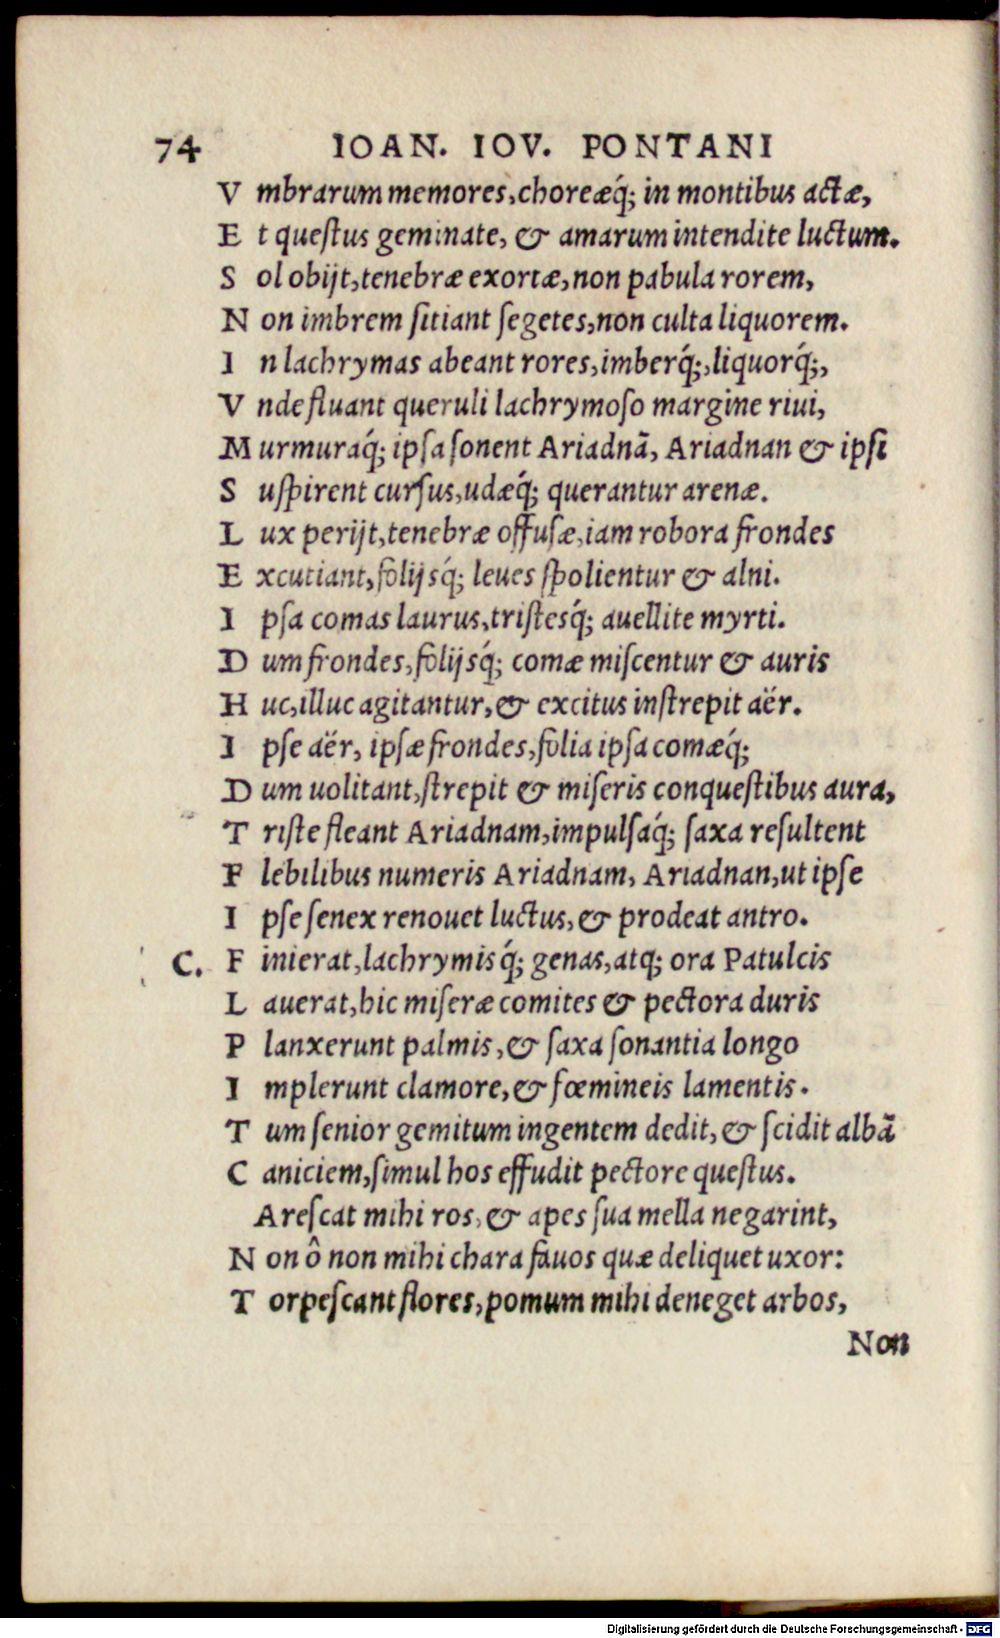 74 IOAN. IOV. PONTANI
V mbrarum memores, choreæq́; in montibus actæ,
E t queſtus geminate, & amarum intendite luctum.
S ol obijt, tenebræ exortæ, non pabula rorem,
N on imbrem ſitiant ſegetes, non culta liquorem.
I n lachrymas abeant rores, imberq́;, liquorq́;,
V nde fluant queruli lachrymoſo margine riui,
M urmuraq́; ipſa ſonent Ariadnã, Ariadnan & ipſi
S uſpirent curſus, udæq́; querantur arenæ.
L ux perijt, tenebræ offuſæ, iam robora frondes
E xcutiant, folijsq́; leues ſpolientur & alni.
I pſa comas laurus, triſtesq́; auellite myrti.
D um frondes, folijsq́; comæ miſcentur & auris
H uc, illuc agitantur, & excitus inſtrepit aër.
I pſe aër, ipſæ frondes, folia ipſa comæq́;
D um uolitant, ſtrepit & miſeris conqueſtibus aura,
T riſte fleant Ariadnam, impulſaq́; ſaxa reſultent
F lebilibus numeris Ariadnam, Ariadnan, ut ipſe
I pſe ſenex renouet luctus, & prodeat antro.
C. F inierat, lachrymisq́; genas, atq; ora Patulcis
L auerat, hic miſeræ comites & pectora duris
P lanxerunt palmis, & ſaxa ſonantia longo
I mplerunt clamore, & fœmineis lamentis.
T um ſenior gemitum ingentem dedit, & ſcidit albã
C aniciem, ſimul hos effudit pectore queſtus.
Areſcat mihi ros, & apes ſua mella negarint,
N on ô non mihi chara fauos quæ deliquet uxor:
T orpeſcant flores, pomum mihi deneget arbos,
Non
Digitalisierung gefördert durch die Deutsche Forschungsgemeinschaft - DFG